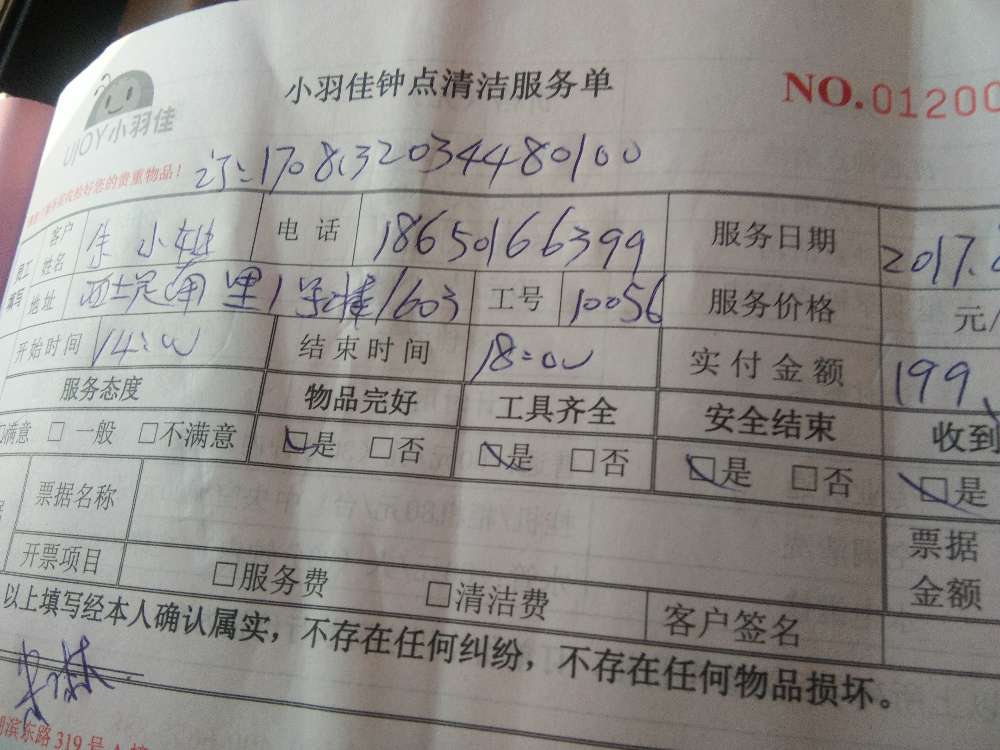 小羽佳钟点清洁服务单
NO.01200
UJOY小羽佳
收捡好您的贵重物品！
订：1708132034480100
客户姓名 朱小姐 电话 18650166399 服务日期 2017.
员工 地址 里1号楼1603 工号 10056 服务价格 元/
开始时间 14:00 结束时间 18:00 实付金额 199
服务态度 物品完好 工具齐全 安全结束 收到
满意 □一般 □不满意 □是 □否 □是 □否 □是 □否 □是
票据名称 票据金额
开票项目 □服务费 □清洁费 客户签名
以上填写经本人确认属实，不存在任何纠纷，不存在任何物品损坏。
湖滨东路319号A栋